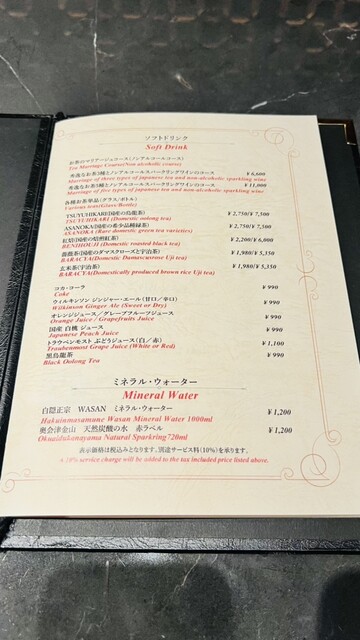 ソフトドリンク
Soft Drink
お茶のマリアージュコース(ノンアルコールコース)
Tea Marriage Course(Non alcoholic course)
秀逸なお茶3種とノンアルコールスパークリングワインのコース ¥6,600
Marriage of three types of japanese tea and non-alcoholic sparkling wine
秀逸なお茶5種とノンアルコールスパークリングワインのコース ¥11,000
Marriage of five types of japanese tea and non-alcoholic sparkling wine
各種お茶単品(グラス/ボトル)
Various teas(Glass/Bottle)
TSUYUHIKARI(国産の烏龍茶) ¥2,750/¥7,500
TSUYUHIKARI (Domestic oolong tea)
ASANOKA(国産の希少品種緑茶) ¥2,750/¥7,500
ASANOKA (Rare domestic green tea varieties)
紅焙(国産の焙煎紅茶) ¥2,200/¥6,000
BENIHOUJI (Domestic roasted black tea)
薔薇茶(国産のダマスクローズと宇治茶) ¥1,980/¥5,350
BARACYA(Domestic Damascurose Uji tea)
玄米茶(宇治茶) ¥1,980/¥5,350
BARACYA(Domestically produced brown rice Uji tea)
コカ・コーラ ¥990
Coke
ウィルキンソン ジンジャー・エール(甘口/辛口) ¥990
Wilkinson Ginger Ale (Sweet or Dry)
オレンジジュース/グレープフルーツジュース ¥990
Orange Juice / Grapefruits Juice
国産 白桃 ジュース ¥990
Japanese Peach Juice
トラウベンモスト ぶどうジュース(白/赤) ¥1,100
Traubenmost Grape Juice (White or Red)
黒烏龍茶 ¥990
Black Oolong Tea
ミネラル・ウォーター
Mineral Water
白隠正宗 WASAN ミネラル・ウォーター ¥1,200
Hakuinmasamune Wasan Mineral Water 1000ml
奥会津金山 天然炭酸の水 赤ラベル ¥1,200
Okuaidukanayama Natural Sparkring720ml
表示価格は税込みとなります。別途サービス料(10%)を承ります。
A 10% service charge will be added to the tax included price listed above.